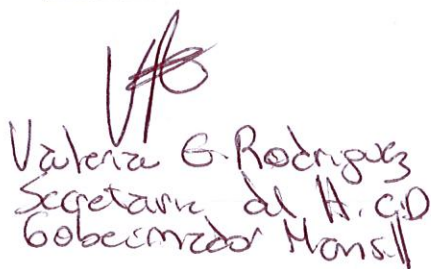 Valeria G. Rodriguez
Secretaria del H. C.D
Gobernador Mansill